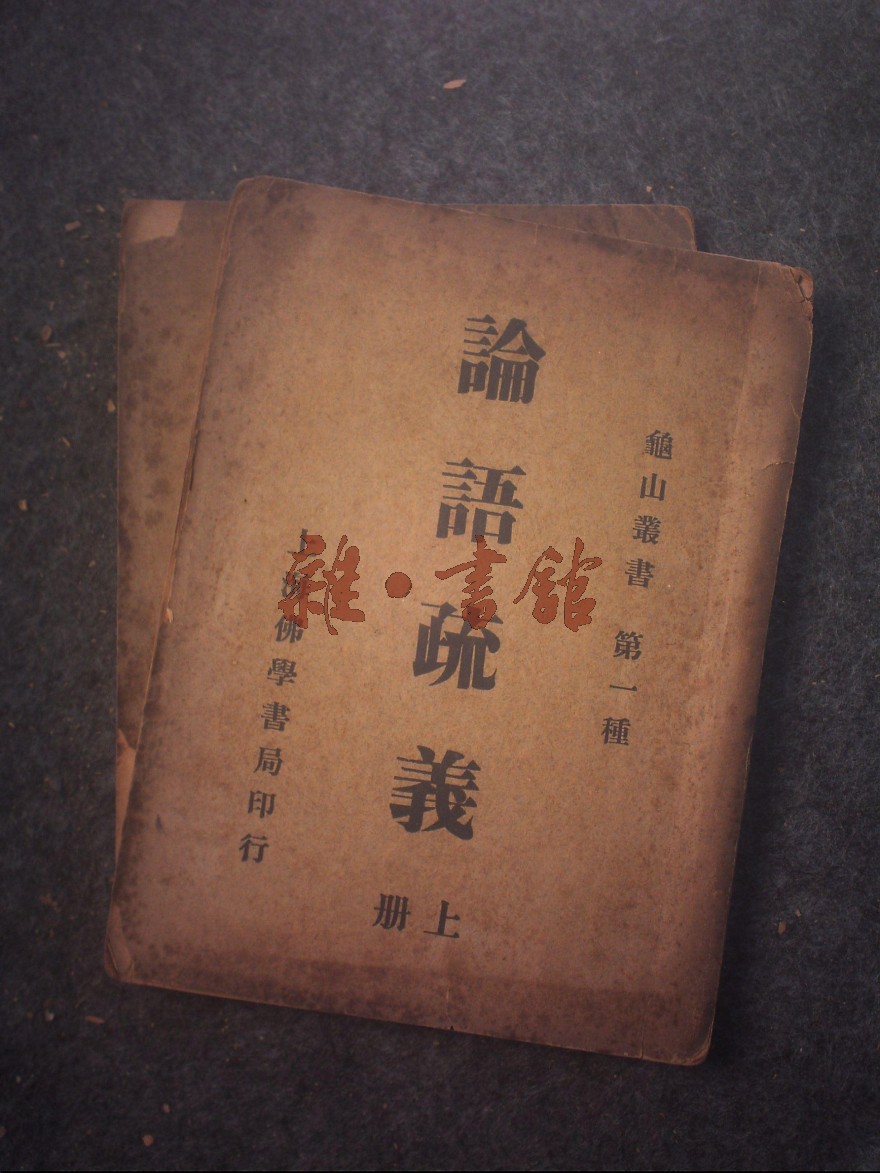 龜山叢書 第一種
論語疏義
上册
上海佛學書局印行
雜·書館